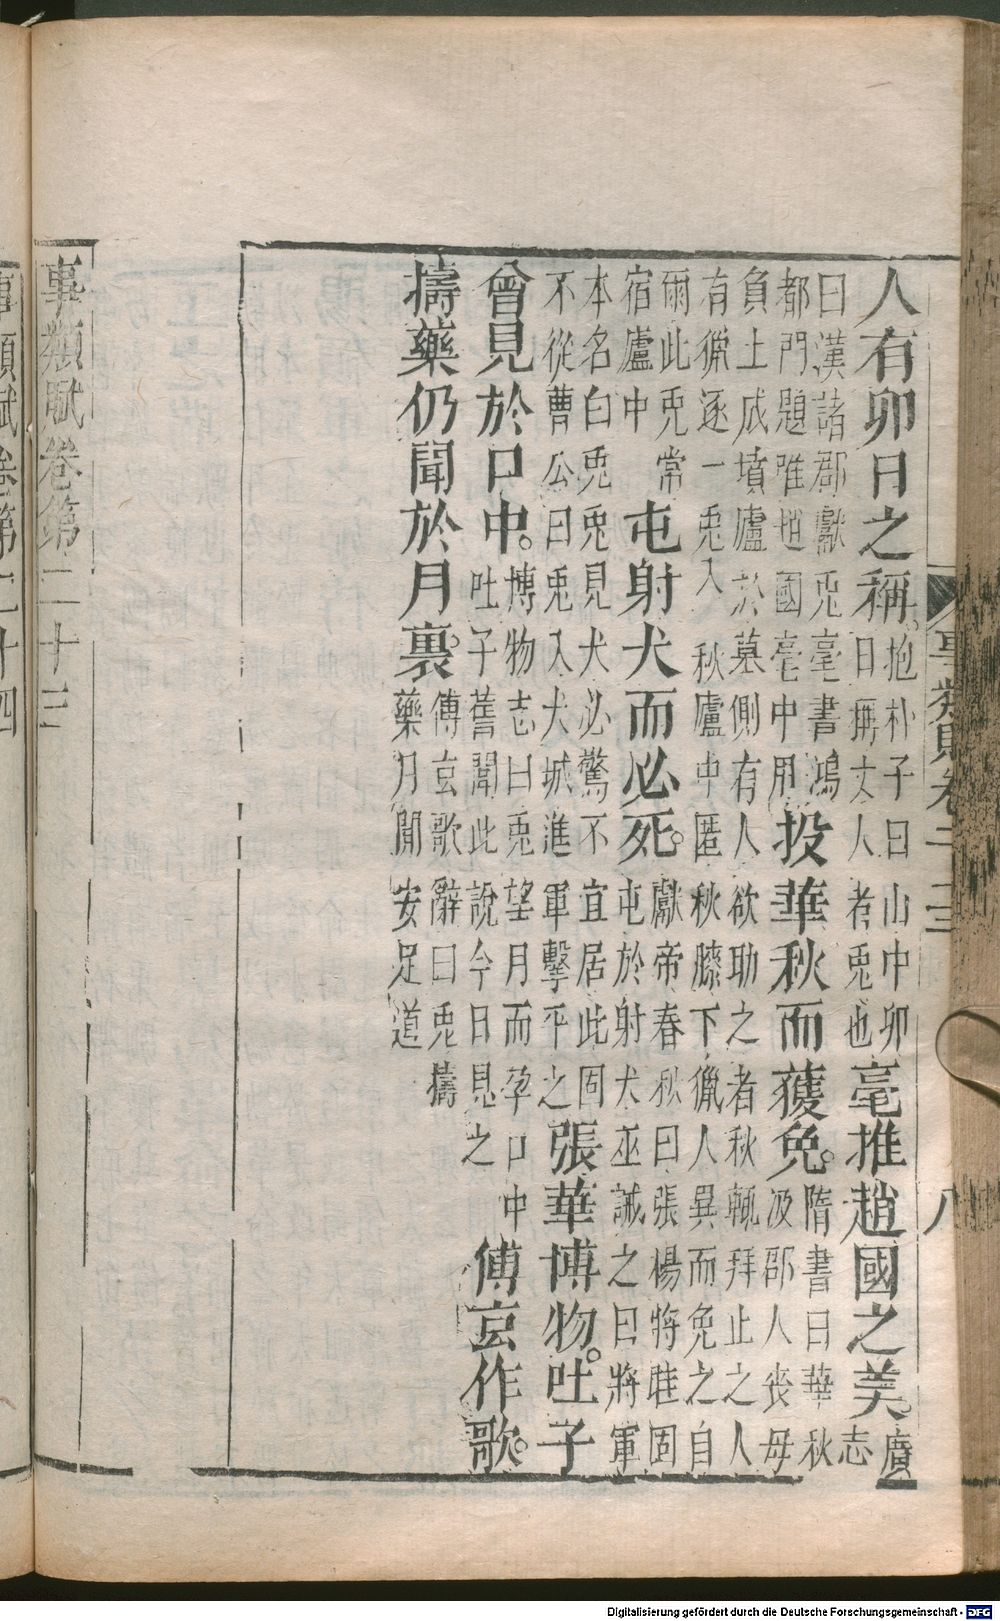 事類賦卷二十三 八
人有卯日之稱。抱朴子曰山中卯日稱丈人者兎也毫推趙國之美。廣志
曰漢諸郡獻兎毫書鴻都門題唯趙國毫中用投華秋而獲免。隋書曰華秋汲郡人喪母
負土成墳廬於墓側有人欲助之者秋輙拜止之人有獵逐一兎入秋廬中匿秋膝下獵人異而免之自
爾此兎常宿廬中屯射犬而必死。獻帝春秋曰張楊將眭固屯於射犬巫誡之曰將軍
本名白兎兎見犬必驚不宜居此固不從曹公曰兎入犬城進軍擊平之張華博物。吐子
曾見於口中。博物志曰兎望月而孕口中吐子舊聞此說今日見之傅玄作歌。
擣藥仍聞於月裏。傅玄歌辭曰兎擣藥月間安足道
事類賦卷第二十三
事類賦卷第二十四
Digitalisierung gefördert durch die Deutsche Forschungsgemeinschaft - DFG